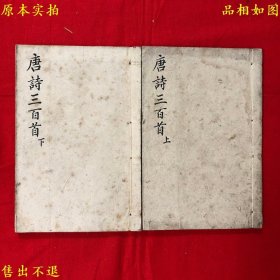 原本实拍
成品如图
唐詩三百首上
唐詩三百首下
售出不退